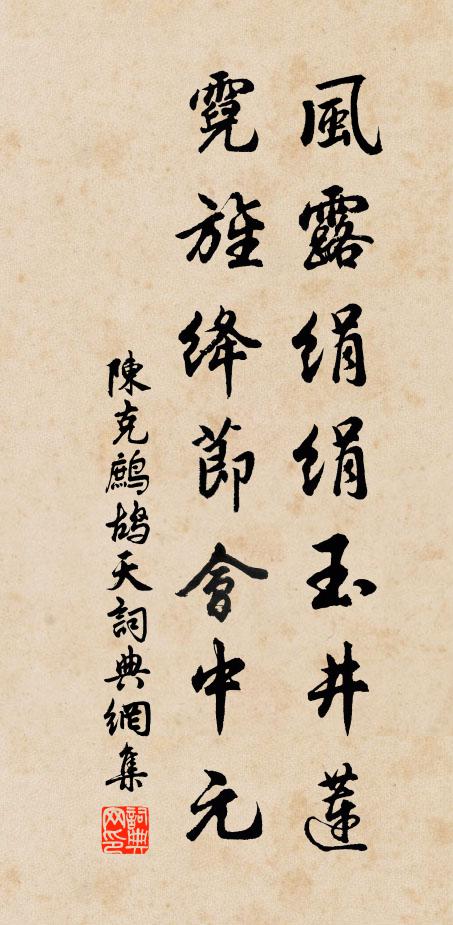 風露絹絹玉井蓮
霓旌絳節會中元
陳克鷓鴣天詞典網集
詞典网印